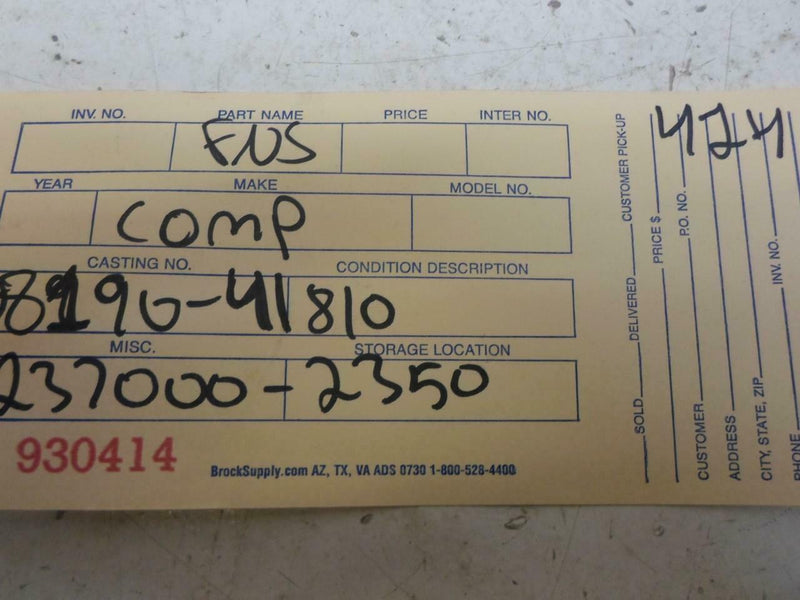 INV. NO. PART NAME PRICE INTER NO.
FNS
YEAR MAKE MODEL NO.
COMP
CASTING NO. CONDITION DESCRIPTION
88190-41810
MISC. STORAGE LOCATION
237000-2350
930414 BrockSupply.com AZ, TX, VA ADS 0730 1-800-528-4400
SOLD DELIVERED CUSTOMER PICK-UP
PRICE $
P.O. NO.
CUSTOMER
ADDRESS
CITY, STATE, ZIP
INV. NO.
PHONE
424